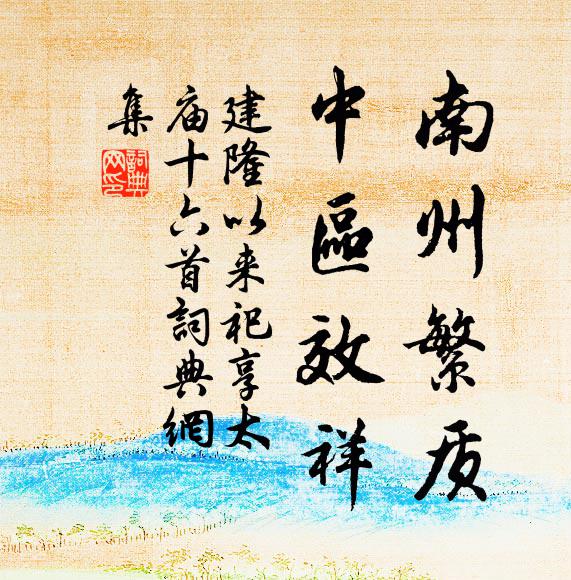 南州繁质
中區效祥
建隆以来祀享太
庙十六首詞典網
集
詞典网印